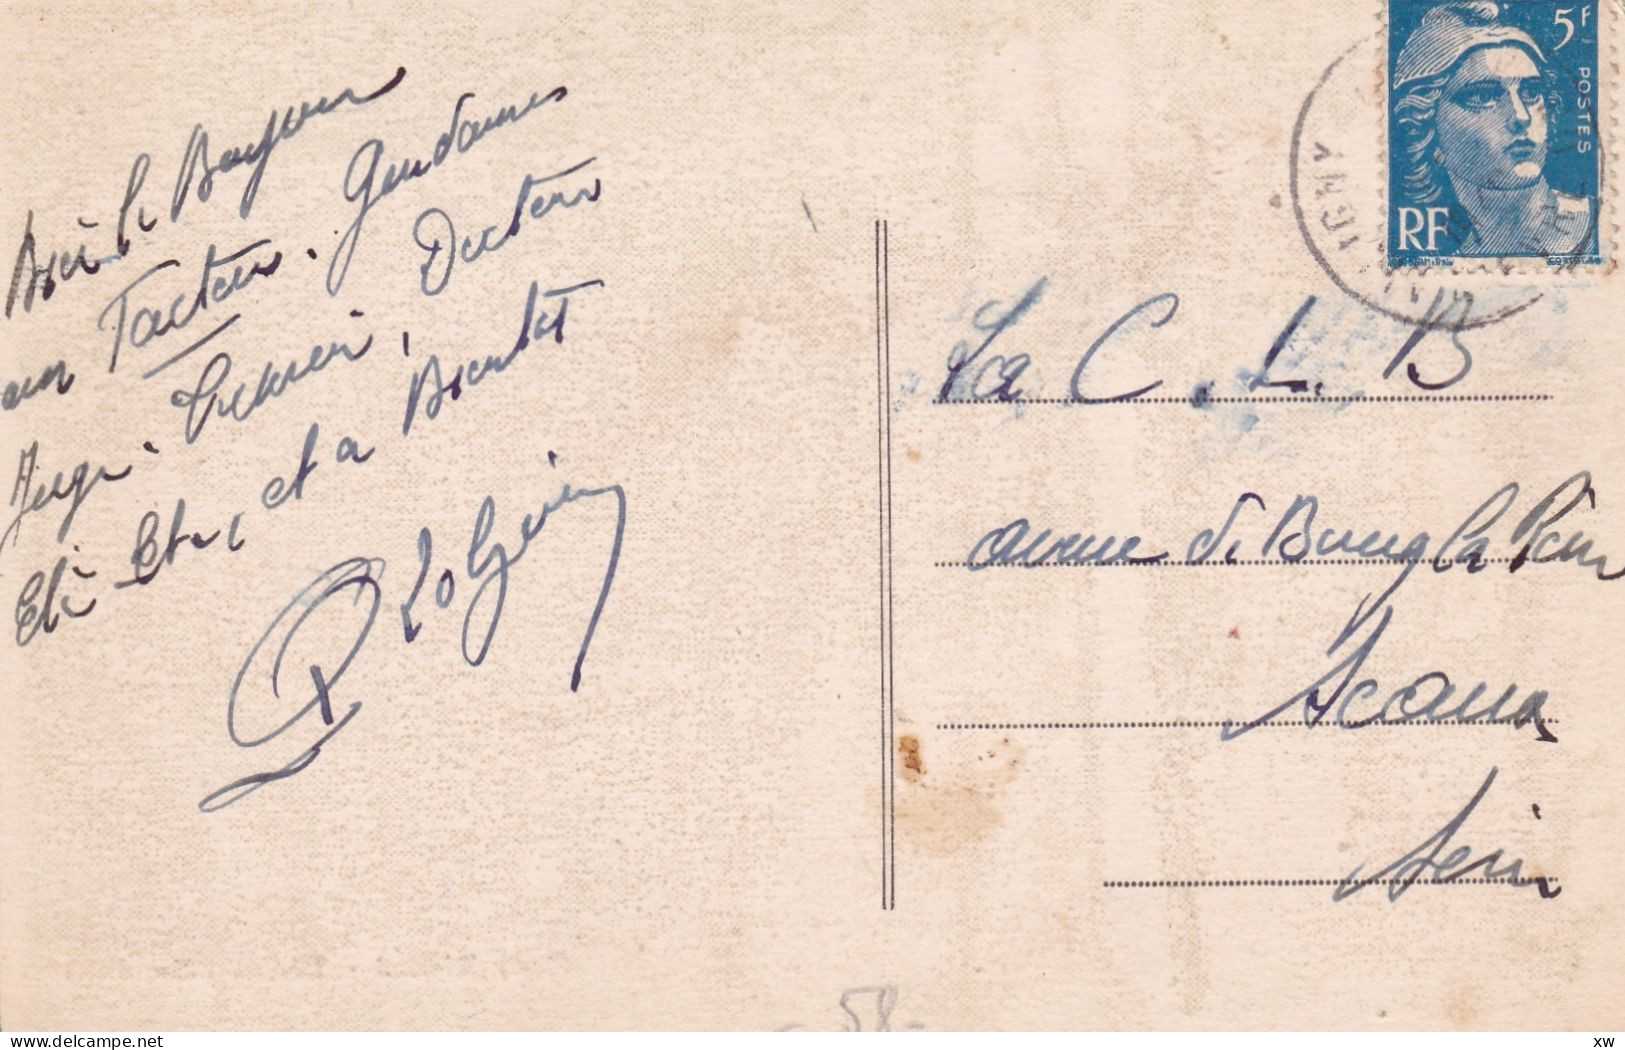 Avec le Bonjour
aux Facteurs. Gendarmes
Juge. Curé, Docteur
Etc Etc, et a Bientôt
5F
POSTES
RF
La C. L. B
avenue de Bourg la Reine
Sceaux
Seine
58-
delcampe.net
xw